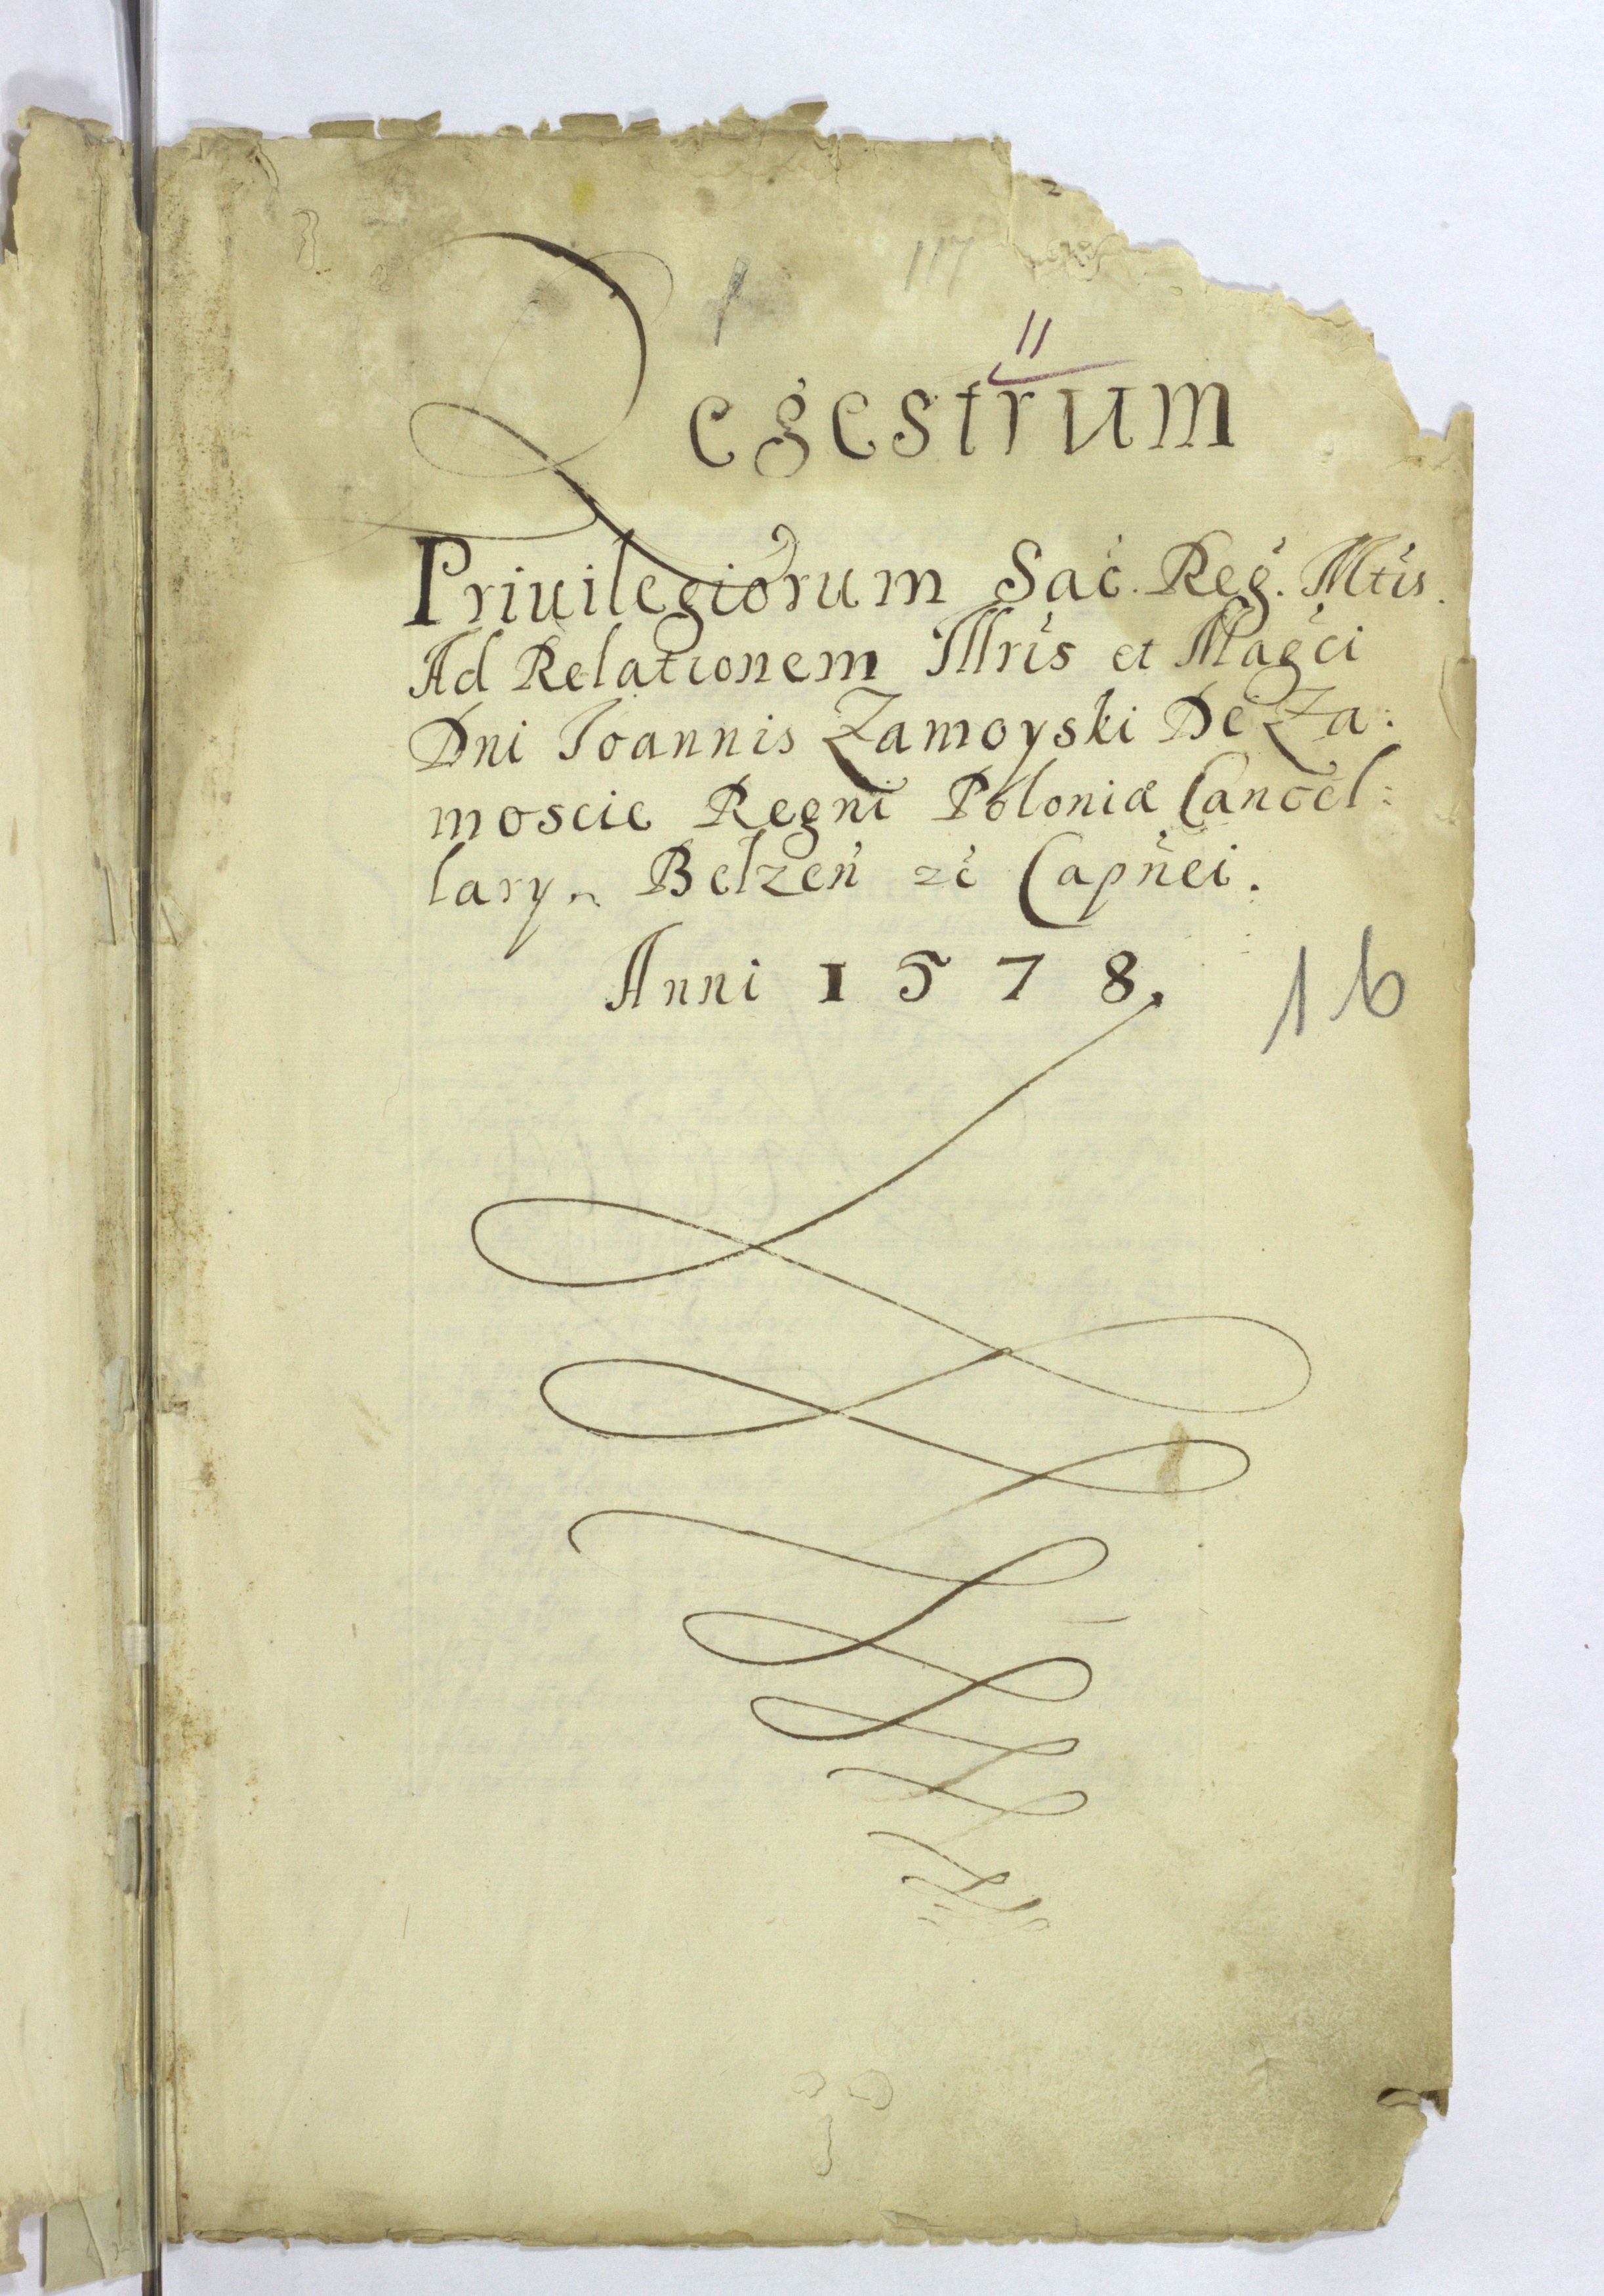 117
11
Regestrum
Priuilegiorum Sac. Reg. Mtis.
Ad Relationem Illris et Magci
Dni Joannis Zamoyski De Za:
moscie Regni Poloniæ Cancel:
lary. Belzen̄ zc̄ Capn̄ei.
Anni 1578.
16